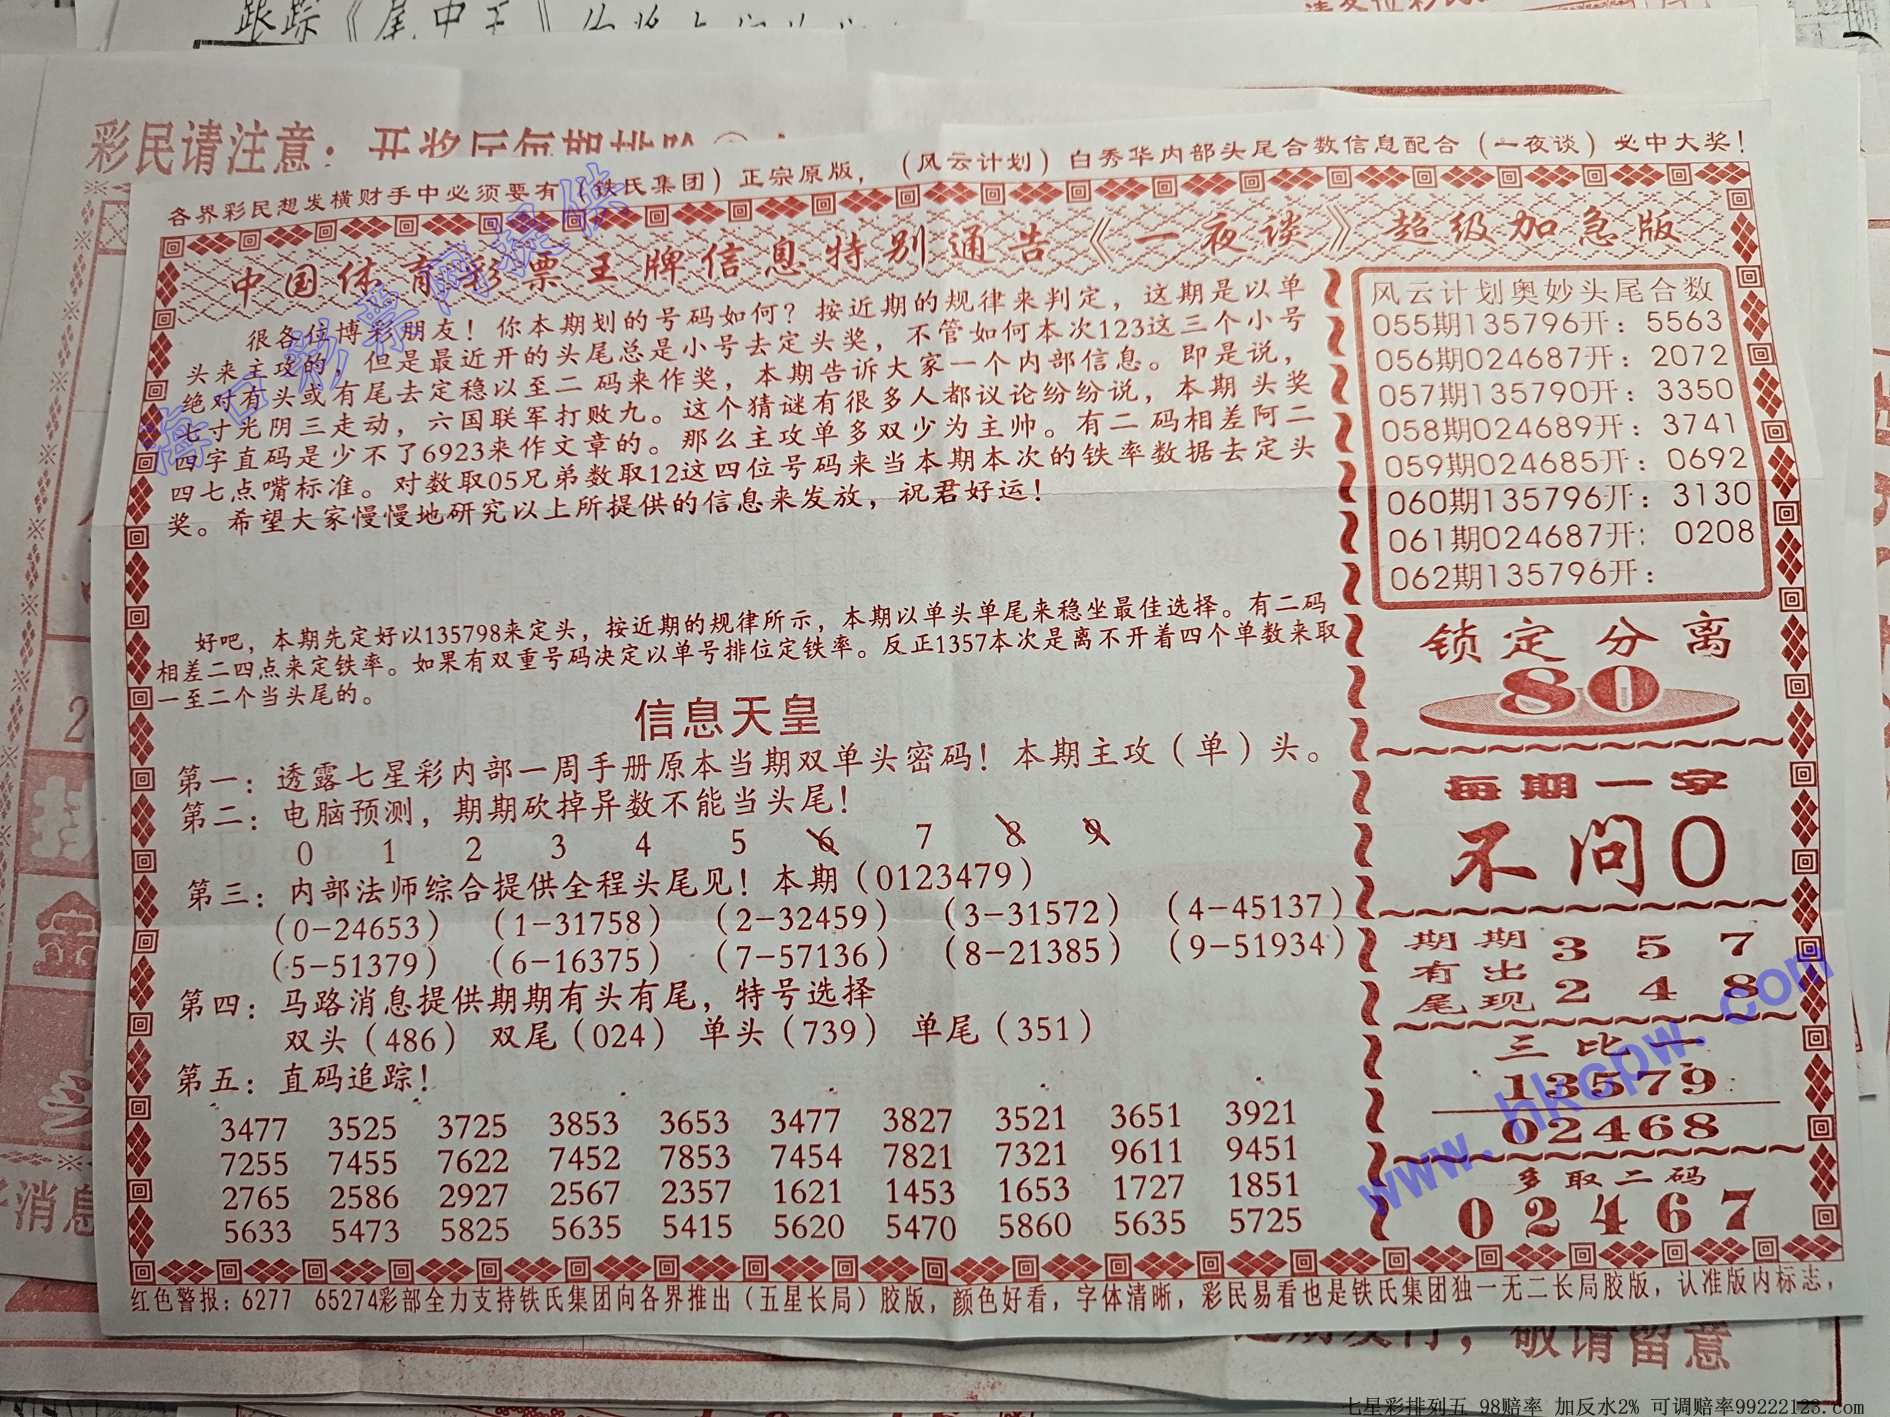 跟踪《尾中王》
彩民请注意：开奖后每期排除
各界彩民想发横财手中必须要有（铁氏集团）正宗原版，（风云计划）白秀华内部头尾合数信息配合（一夜谈）必中大奖！
中国体育彩票王牌信息特别通告《一夜谈》超级加急版
很各位博彩朋友！你本期划的号码如何？按近期的规律来判定，这期是以单
头来主攻的，但是最近开的头尾总是小号去定头奖，不管如何本次123这三个小号
绝对有头或有尾去定稳以至二码来作奖，本期告诉大家一个内部信息。即是说，
七寸光阴三走动，六国联军打败九。这个猜谜有很多人都议论纷纷说，本期 头奖
四字直码是少不了6923来作文章的。那么主攻单多双少为主帅。有二码相差阿二
四七点嘴标准。对数取05兄弟数取12这四位号码来当本期本次的铁率数据去定头
奖。希望大家慢慢地研究以上所提供的信息来发放，祝君好运！
好吧，本期先定好以135798来定头，按近期的规律所示，本期以单头单尾来稳坐最佳选择。有二码
相差二四点来定铁率。如果有双重号码决定以单号排位定铁率。反正1357本次是离不开着四个单数来取
一至二个当头尾的。
信息天皇
第一：透露七星彩内部一周手册原本当期双单头密码！本期主攻（单）头。
第二：电脑预测，期期砍掉异数不能当头尾！
0 1 2 3 4 5 6 7 8 9
第三：内部法师综合提供全程头尾见！本期（0123479）
（0-24653） （1-31758） （2-32459） （3-31572） （4-45137）
（5-51379） （6-16375） （7-57136） （8-21385） （9-51934）
第四：马路消息提供期期有头有尾，特号选择
双头（486） 双尾（024） 单头（739） 单尾（351）
第五：直码追踪！
3477 3525 3725 3853 3653 3477 3827 3521 3651 3921
7255 7455 7622 7452 7853 7454 7821 7321 9611 9451
2765 2586 2927 2567 2357 1621 1453 1653 1727 1851
5633 5473 5825 5635 5415 5620 5470 5860 5635 5725
风云计划奥妙头尾合数
055期135796开：5563
056期024687开：2072
057期135790开：3350
058期024689开：3741
059期024685开：0692
060期135796开：3130
061期024687开：0208
062期135796开：
锁定分离
80
每期一字
不问0
期期 3 5 7
有出
尾现 2 4 8
三比一
13579
02468
多取二码
02467
红色警报：6277 65274彩部全力支持铁氏集团向各界推出（五星长局）胶版，颜色好看，字体清晰，彩民易看也是铁氏集团独一无二长局胶版，认准版内标志，
敬请留意
www.hkcpw.com
七星彩排列五 98赔率 加反水2% 可调赔率99222123.com